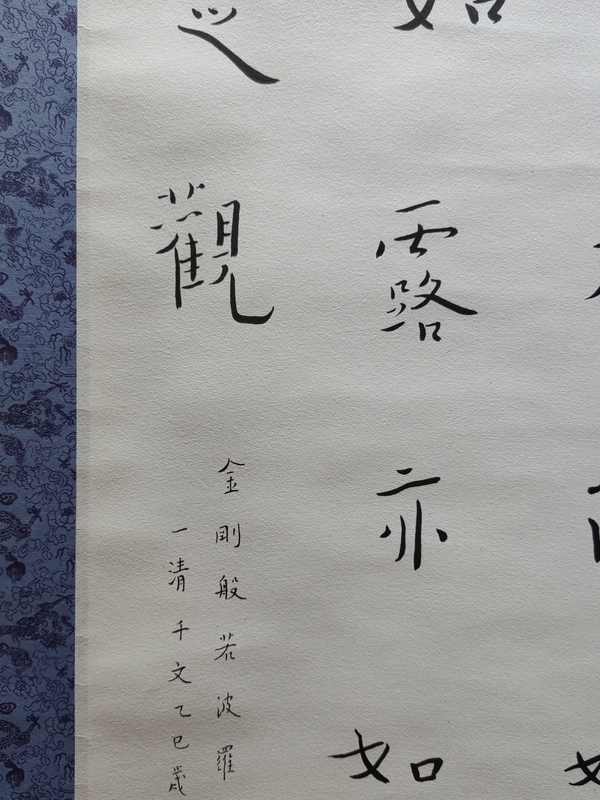 如露亦如
觀
金剛般若波羅
一清千文乙巳歲